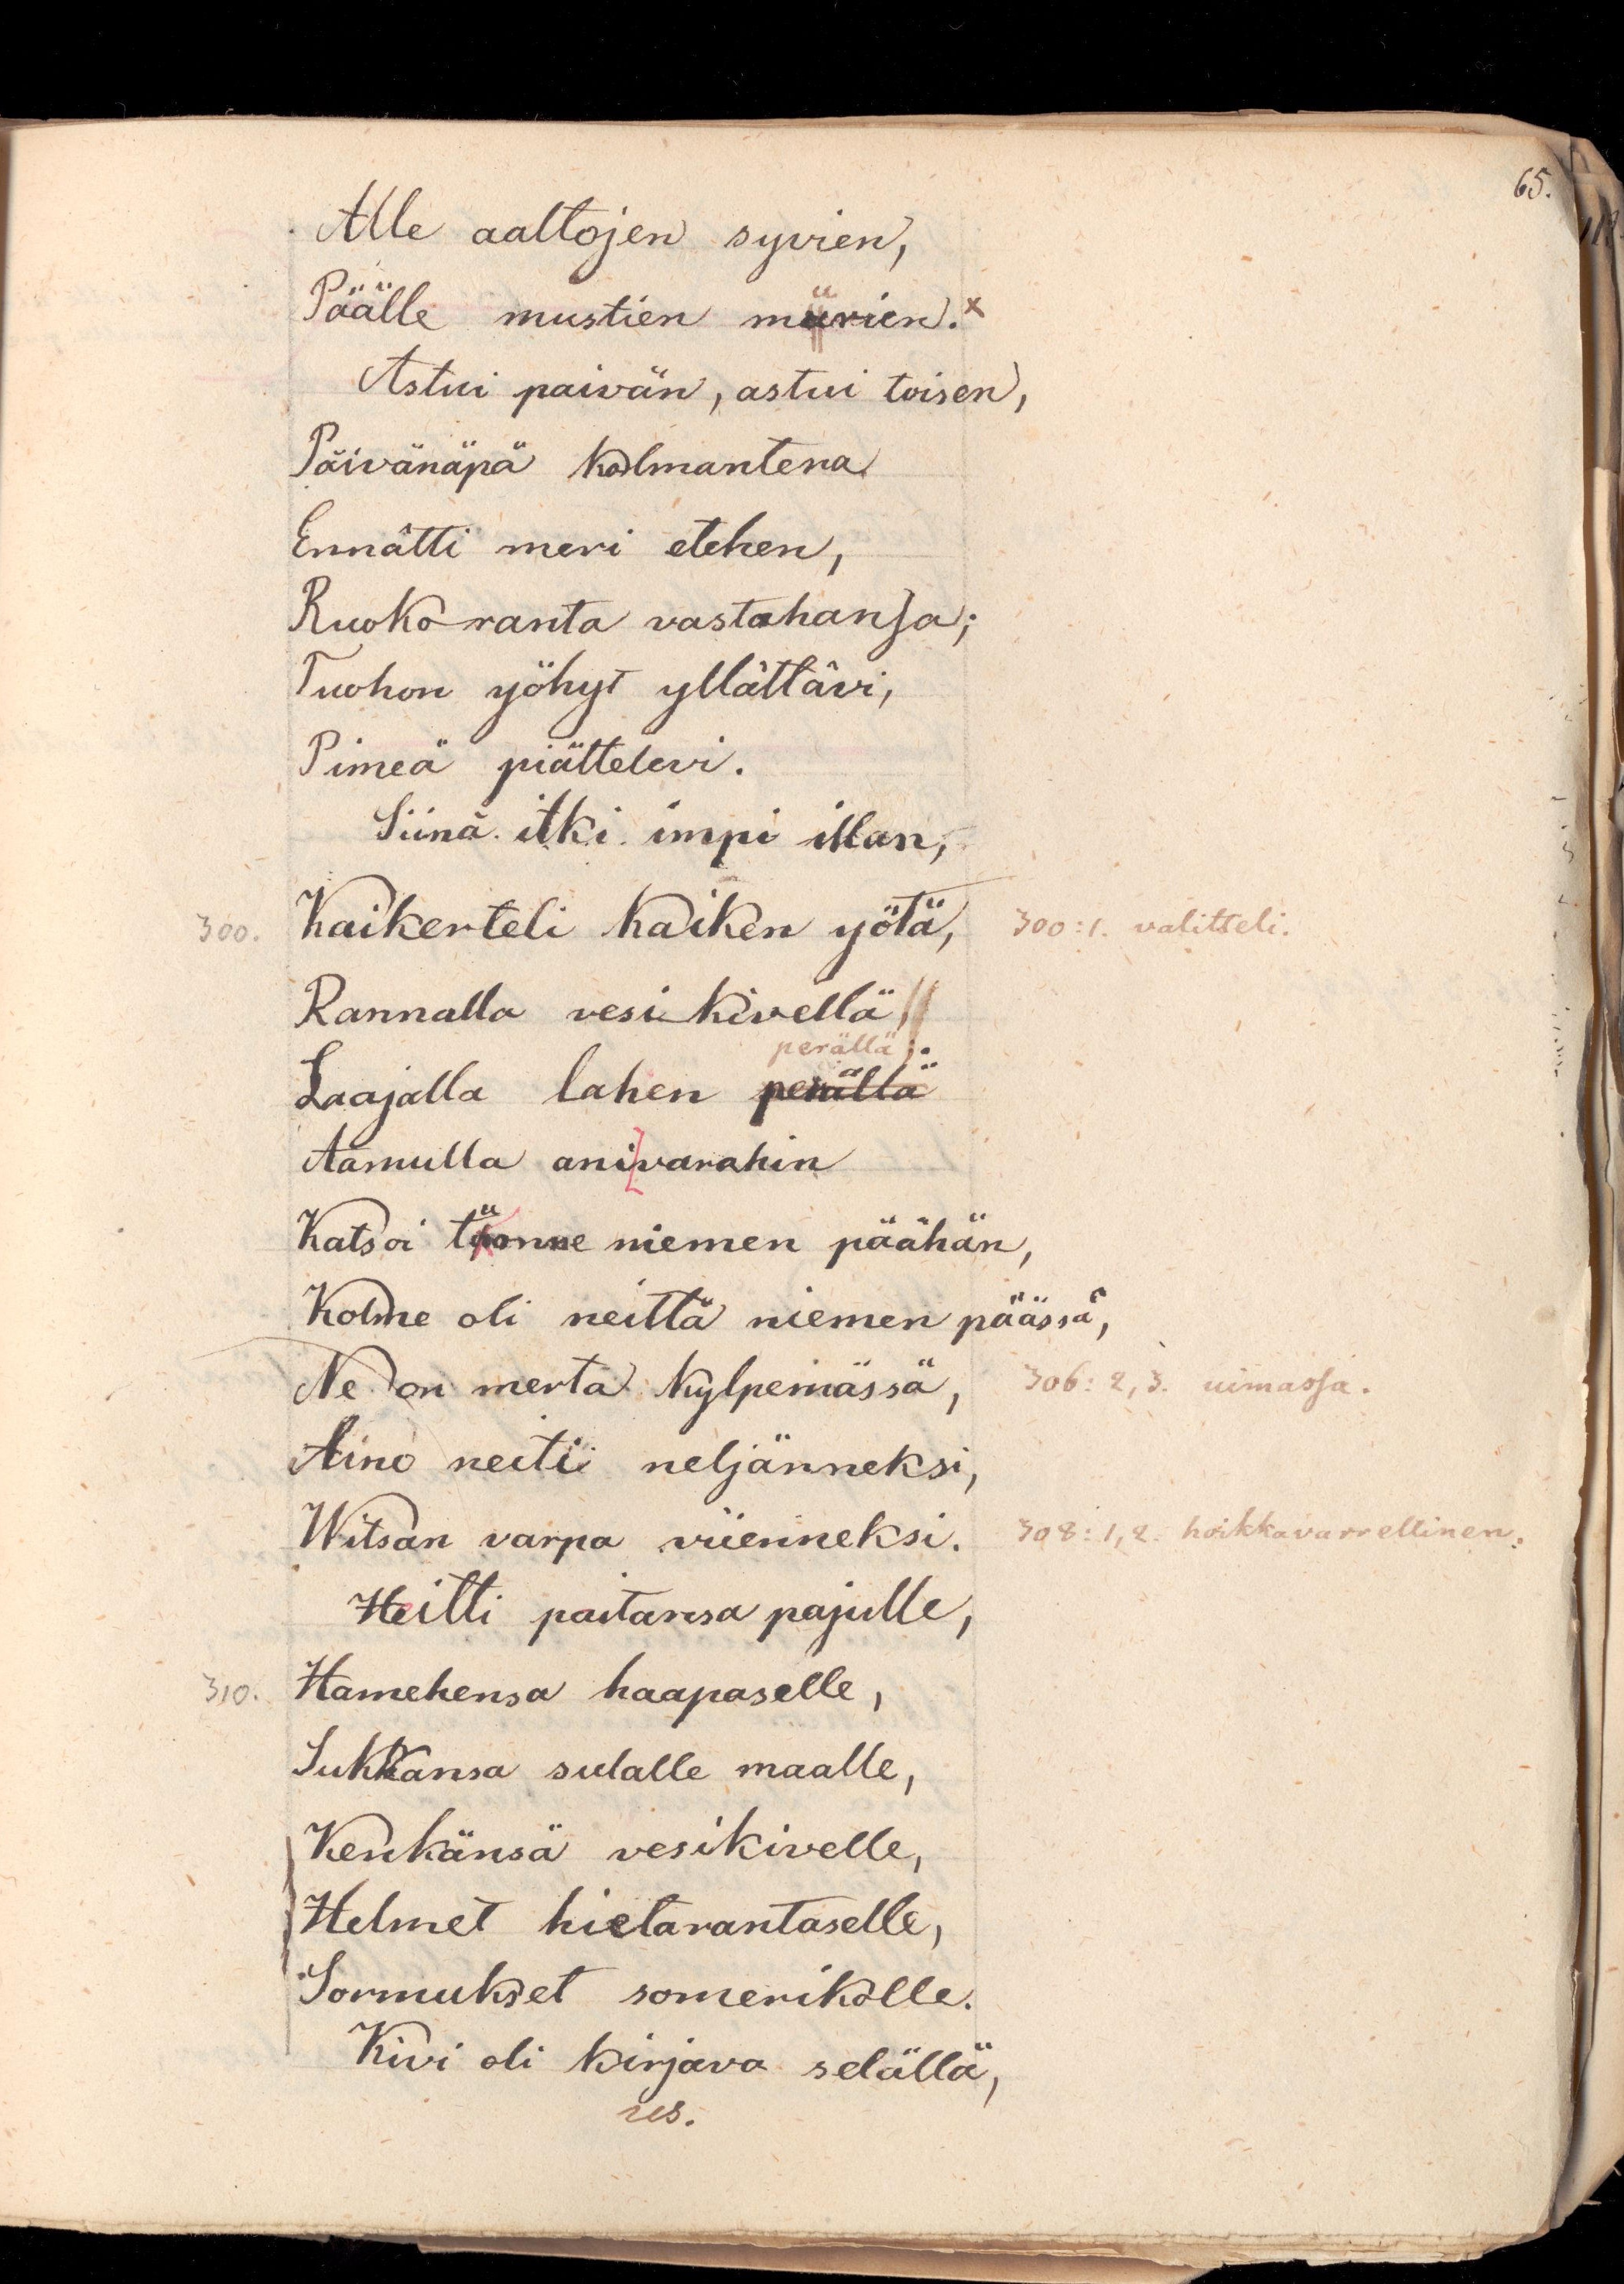 65.
Alle aaltojen syvien,
Päälle mustien mürien. x
Astui paivän, astui toisen,
Päivänäpä kolmantena
Ennätti meri etehen,
Ruoko-ranta vastahansa;
Tuohon yöhyt yllättävi,
Pimeä piättelevi.
Siinä itki impi illan,
300. Kaikerteli kaiken yötä, 300:1. valitteli.
Rannalla vesi-kivellä,
perällä;
Laajalla lahen perällä
Aamulla ani varahin
Katsoi tuonne niemen päähän,
Kolme oli neittä niemen päässä,
Ne on merta kylpemässä, 306: 2, 3. uimassa.
Aino neiti neljänneksi,
Witsan varpa viienneksi. 308: 1, 2. hoikkavarrellinen.
Heitti paitansa pajulle,
310. Hamehensa haapaselle,
Sukkansa sulalle maalle,
Kenkänsä vesikivelle,
Helmet hietarantaselle,
Sormukset somerikolle.
Kivi oli kirjava selällä,